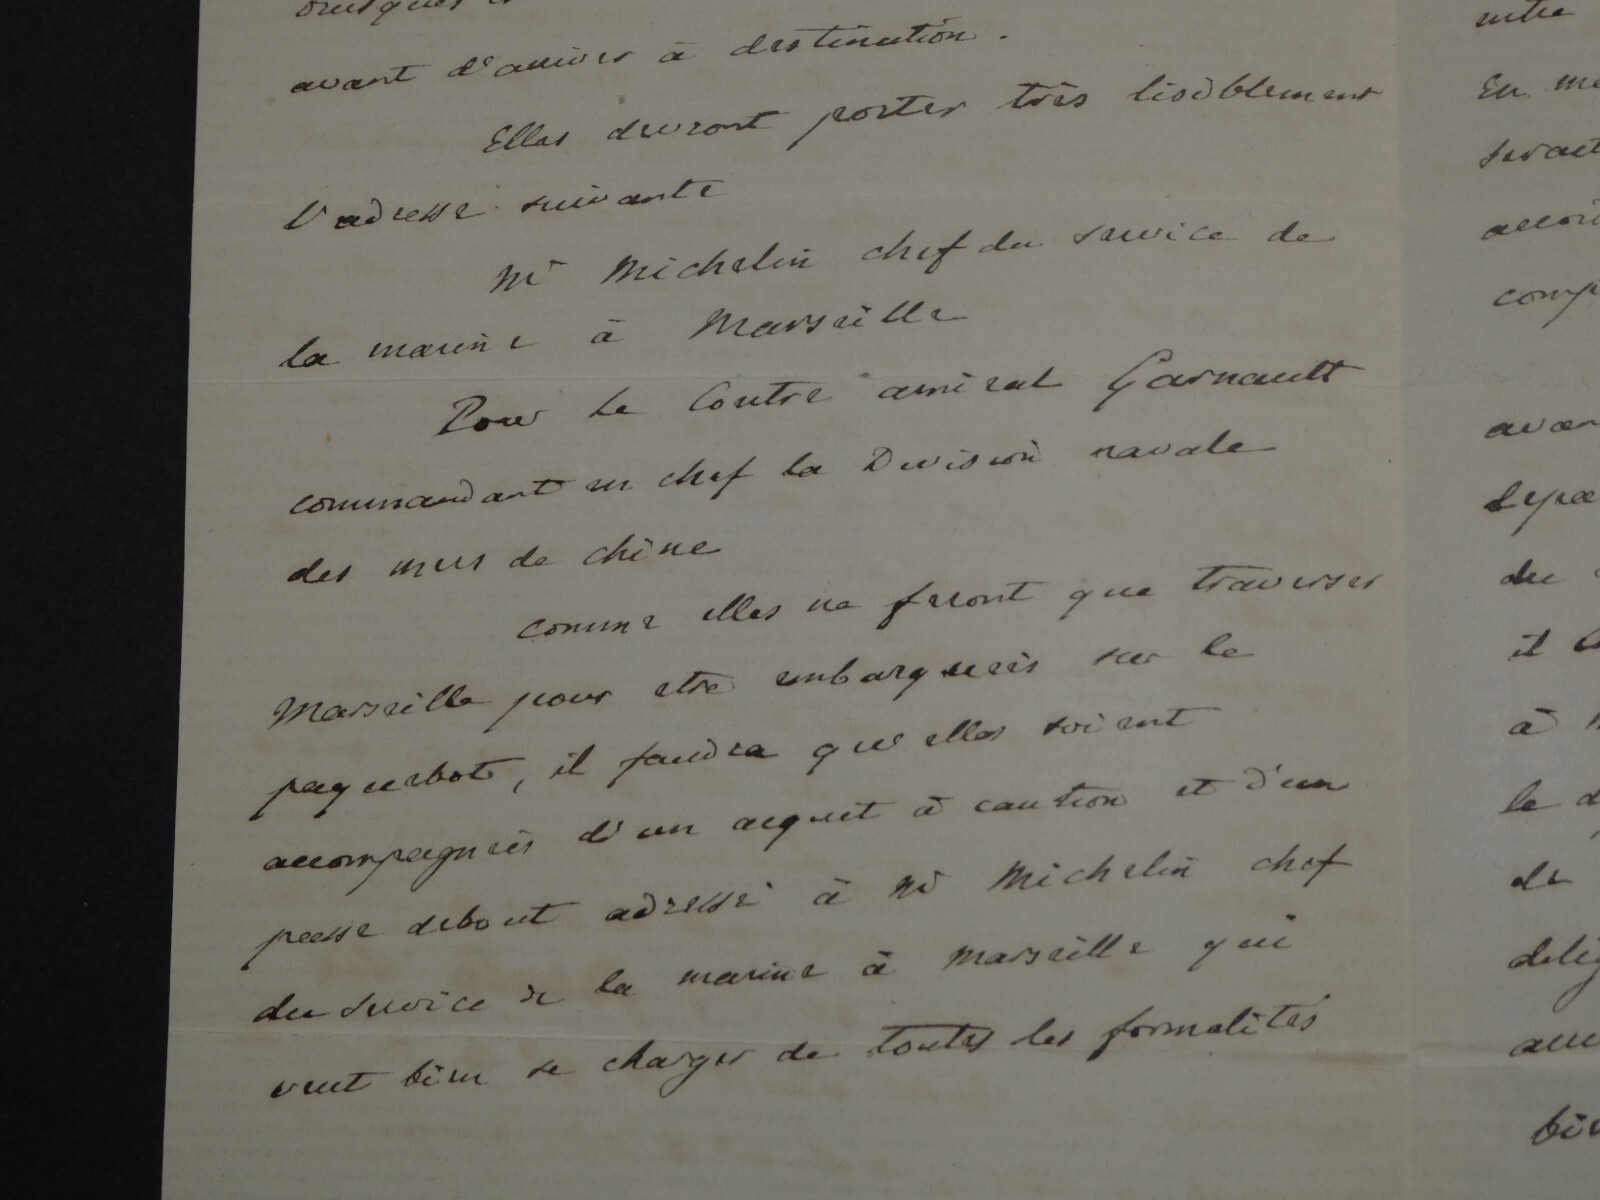 avant d'arriver à destination.
Elles devront porter très lisiblement
l'adresse suivante
Mr Michelin chef du service de
la marine à Marseille
Pour le Contre amiral Garnault
commandant en chef la Division navale
des mers de chine
comme elles ne feront que traverser
Marseille pour etre embarqueés sur le
paquebot, il faudra qu'elles soient
accompagneés d'un acquit à caution et d'un
passe debout adressé à Mr Michelin chef
du service de la marine à Marseille qui
veut bien se charger de toutes les formalités
entre
En
avan
du
il
à
le
de